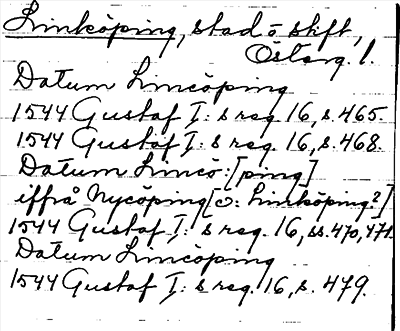 Linköping, stad o skift,
Österg. l.
Datum Lincöping
1544 Gustaf I: s reg. 16, s. 465.
1544 Gustaf I: s reg. 16, s. 468.
Datum Limcö: [ping]
iffrå Nycöping [ɔ: Linköping?]
1544 Gustaf I: s reg. 16, ss. 470, 471.
Datum Lincöping
1544 Gustaf I: s reg. 16, s. 479.